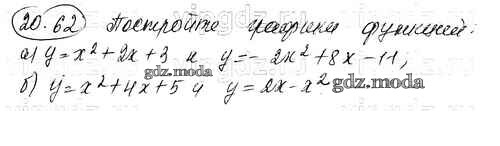 20.62 Постройте графики функций:
а) y = x² + 2x + 3 и y = - 2x² + 8x - 11,
gdz.moda
б) y = x² + 4x + 5 и y = 2x - x²
gdz.moda